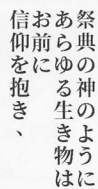 祭典の神のように
あらゆる生き物は
お前に
信仰を抱き、